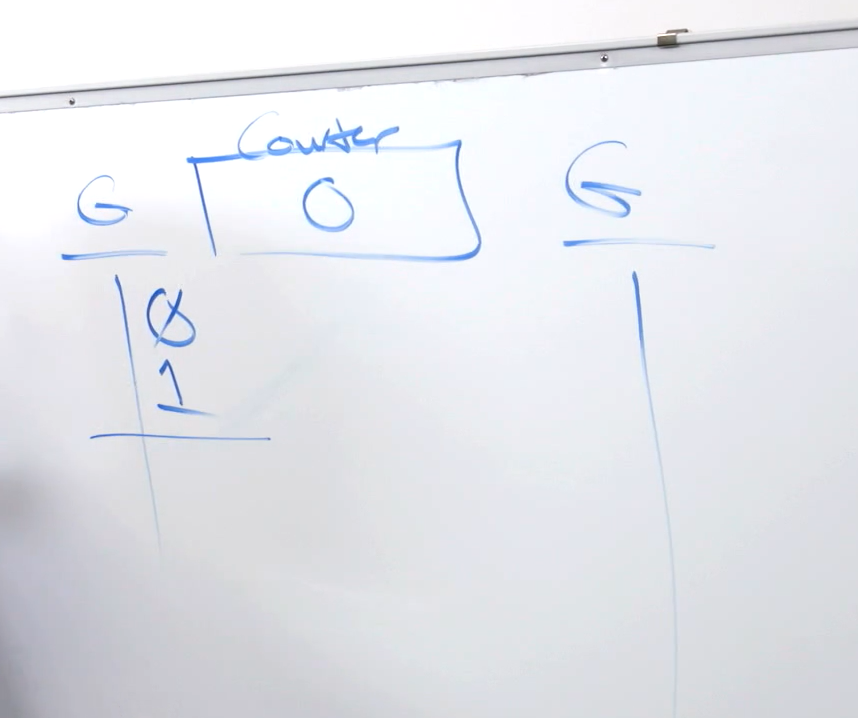 Counter
G 0 G
0
1